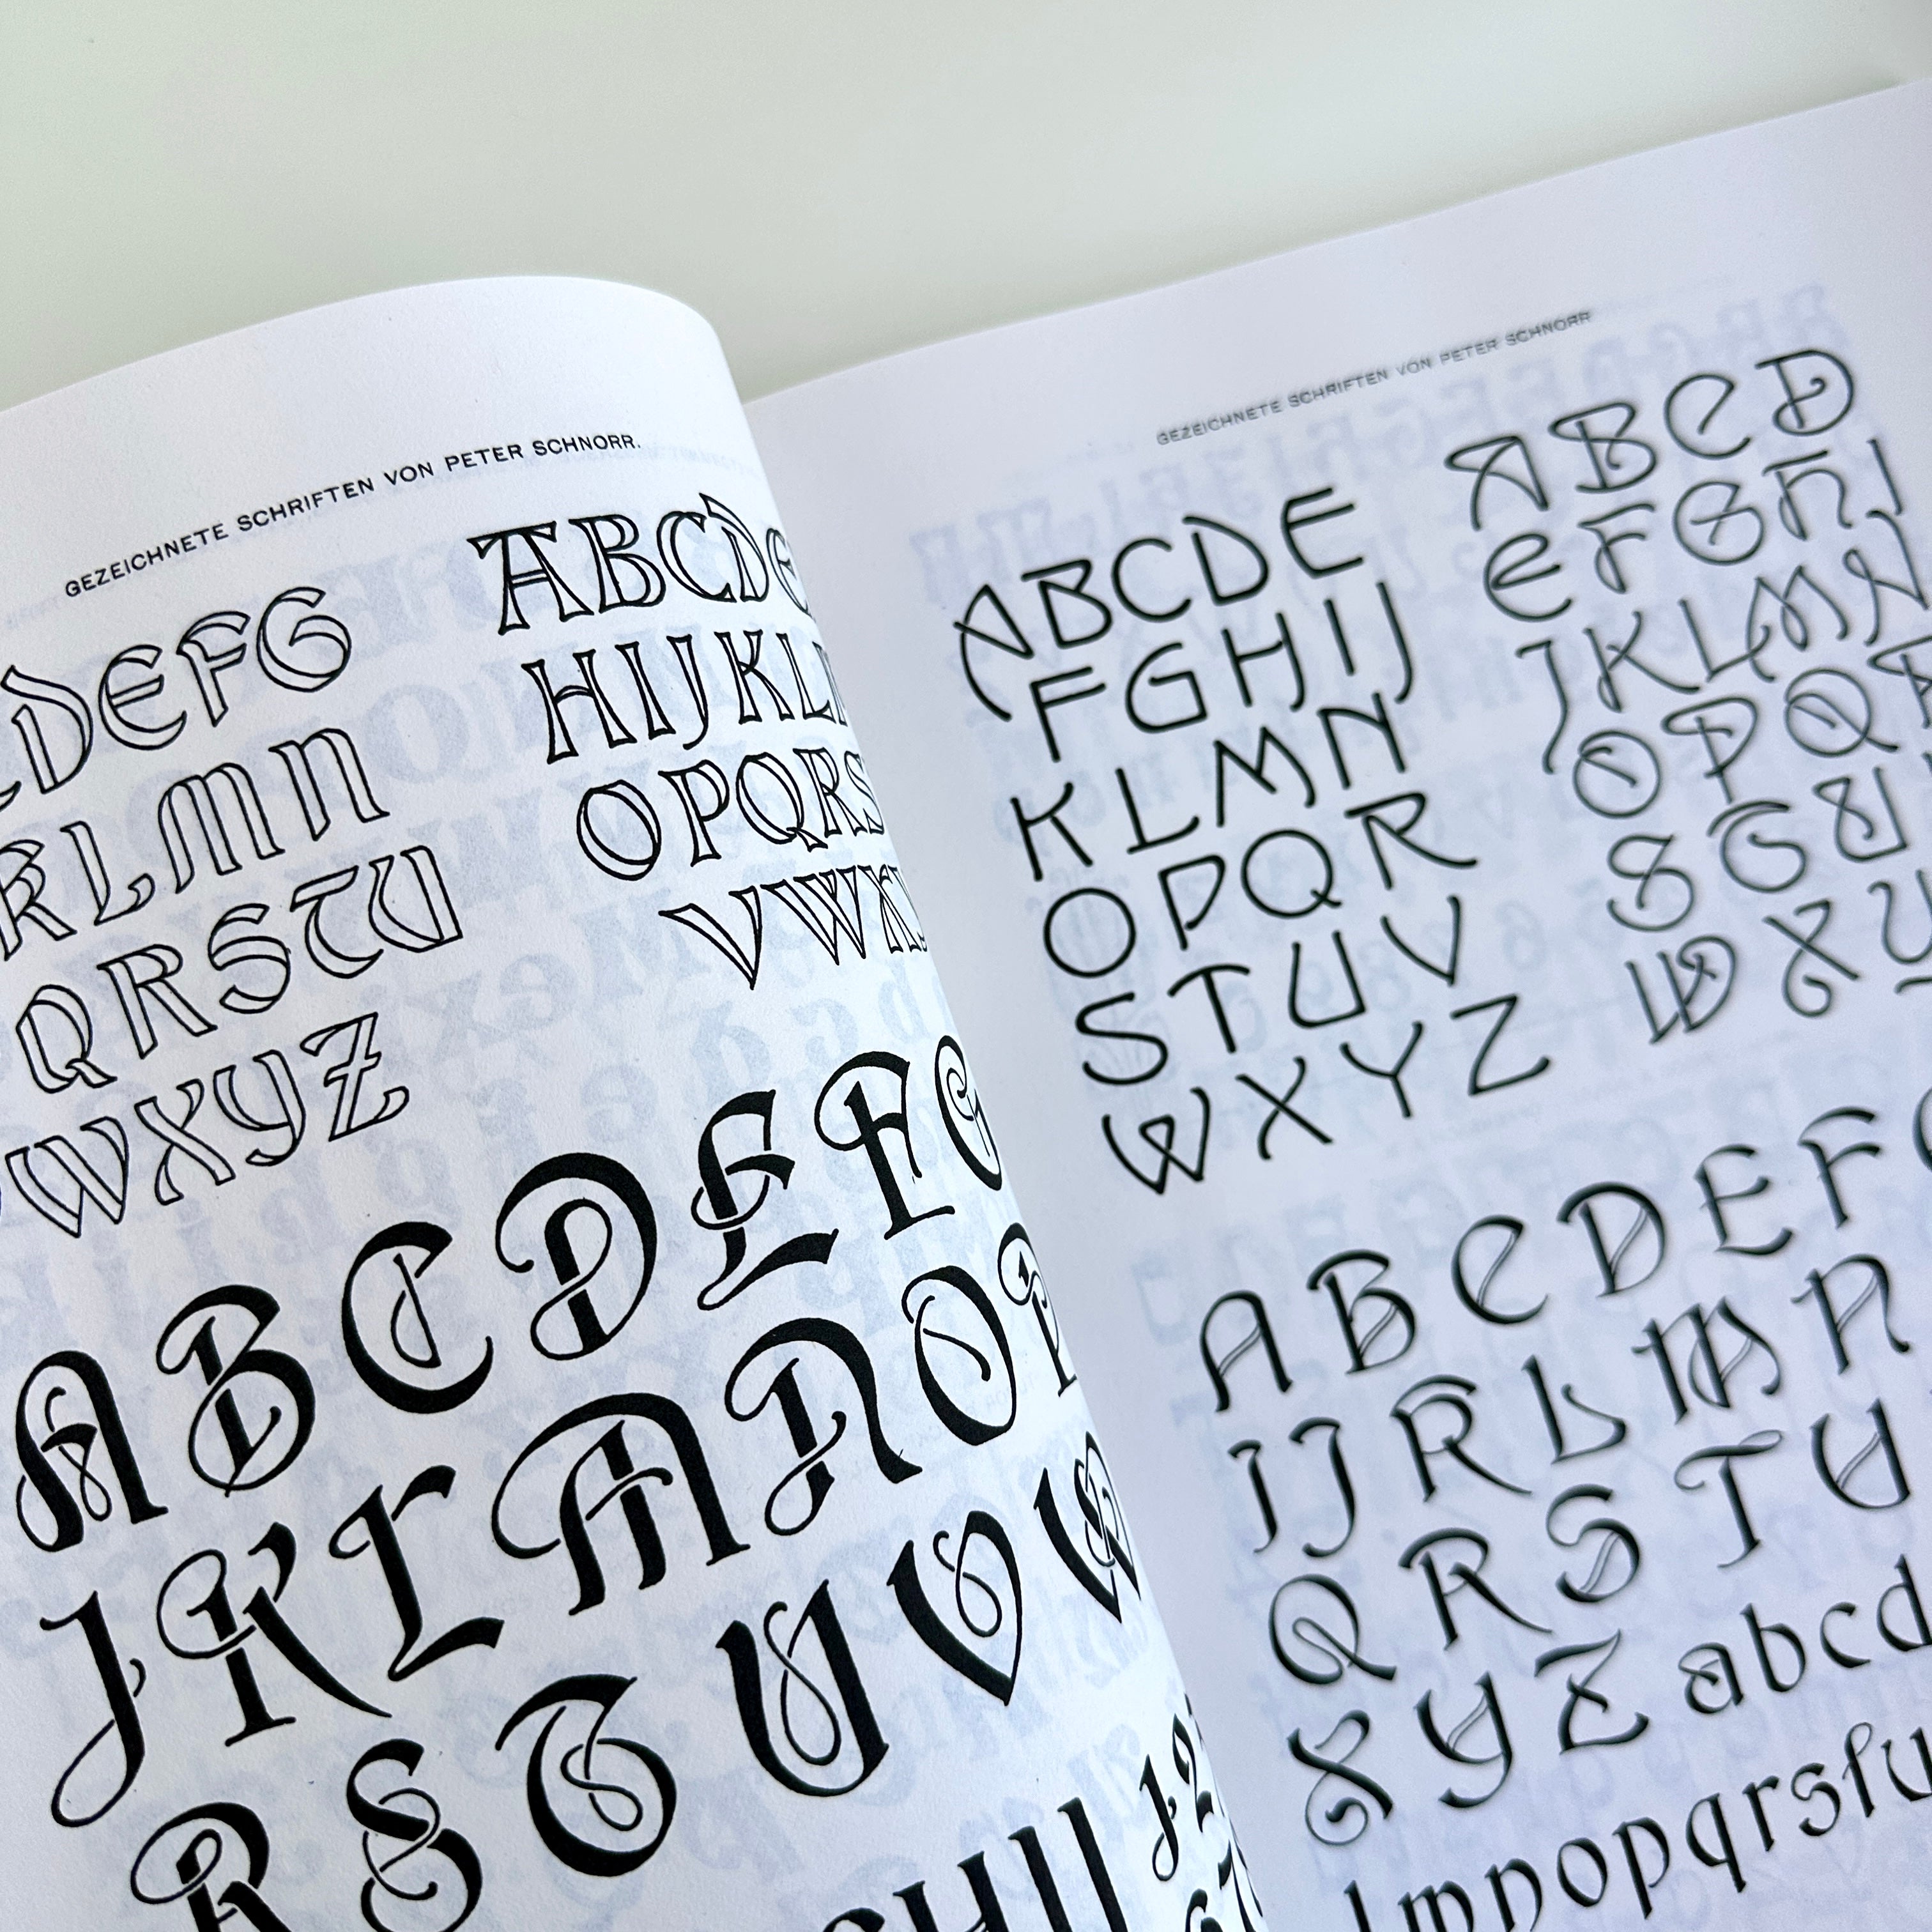 GEZEICHNETE SCHRIFTEN VON PETER SCHNORR.
DEFG
KLMN
QRSTU
WXYZ
ABCDE
HIJKL
OPQRS
VWX
ABCDEFG
JKLMNOP
RSTUVW
HIJ
12
GEZEICHNETE SCHRIFTEN VON PETER SCHNORR
ABCDE
FGHIJ
KLMN
OPQR
STUV
WXYZ
ABCD
EFGHI
JKLMN
OPQR
STU
WXY
ABCDEFG
IJKLMN
QRSTU
XYZ abcd
mnopqrstu